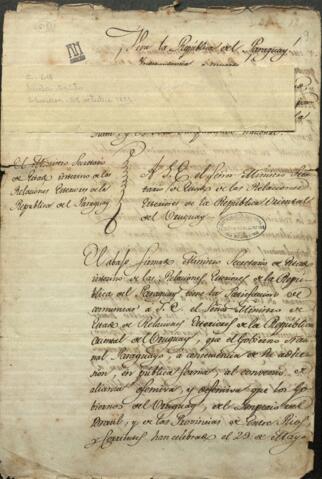 Viva la República del Paraguay
Independencia
El Ministro Secretario
de Estado interino de las
Relaciones Exteriores de la
República del Paraguay
A S. E. el Señor Ministro Secre
tario de Estado de las Relaciones
Exteriores de la República Oriental
del Uruguay
El abajo firmado Ministro Secretario de Estado
interino de las Relaciones Exteriores de la Repú
blica del Paraguay tiene la satisfacción de
comunicar a S. E. el Señor Ministro de
Estado de Relaciones Exteriores de la República
Oriental del Uruguay, que el Gobierno Nacio
nal Paraguayo, a consecuencia de su adhe
sion, en publica forma, al convenio de
alianza ofensiva, y defensiva que los Go
biernos del Uruguay, del Imperio del
Brasil, y de las Provincias de Entre Rios
y Corrientes han celebrado el 29 de Mayo